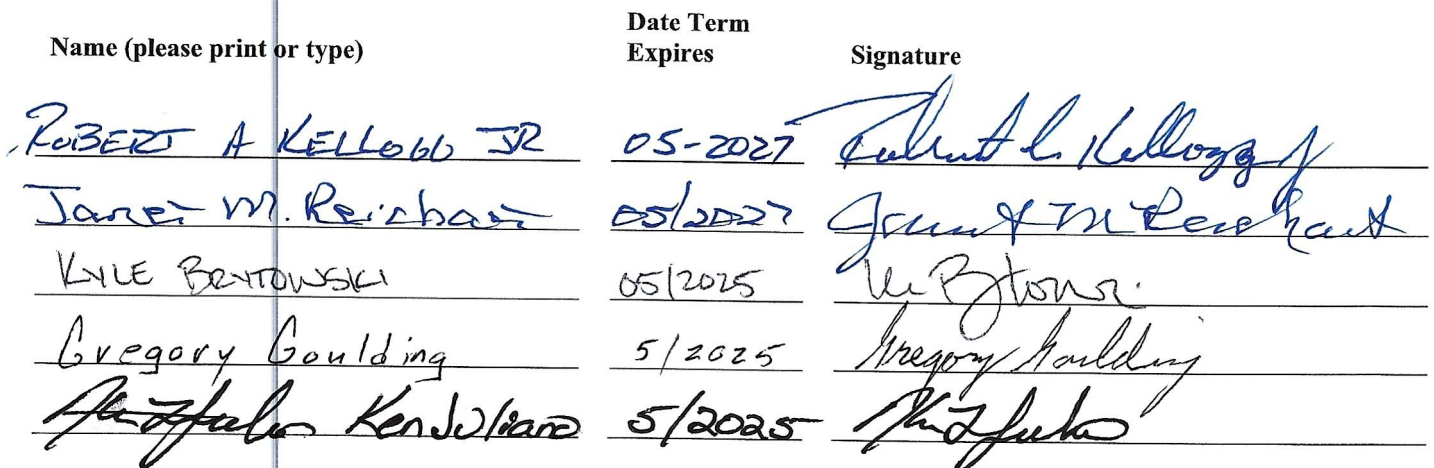 Name (please print or type) Date Term Expires Signature
ROBERT A KELLOGG JR 05-2027 Robert A. Kellogg Jr
Janet M. Reichart 05/2027 Janet M Reichart
KYLE BRYTOWSKI 05/2025
Gregory Goulding 5/2025 Gregory Goulding
Ken Juliano 5/2025